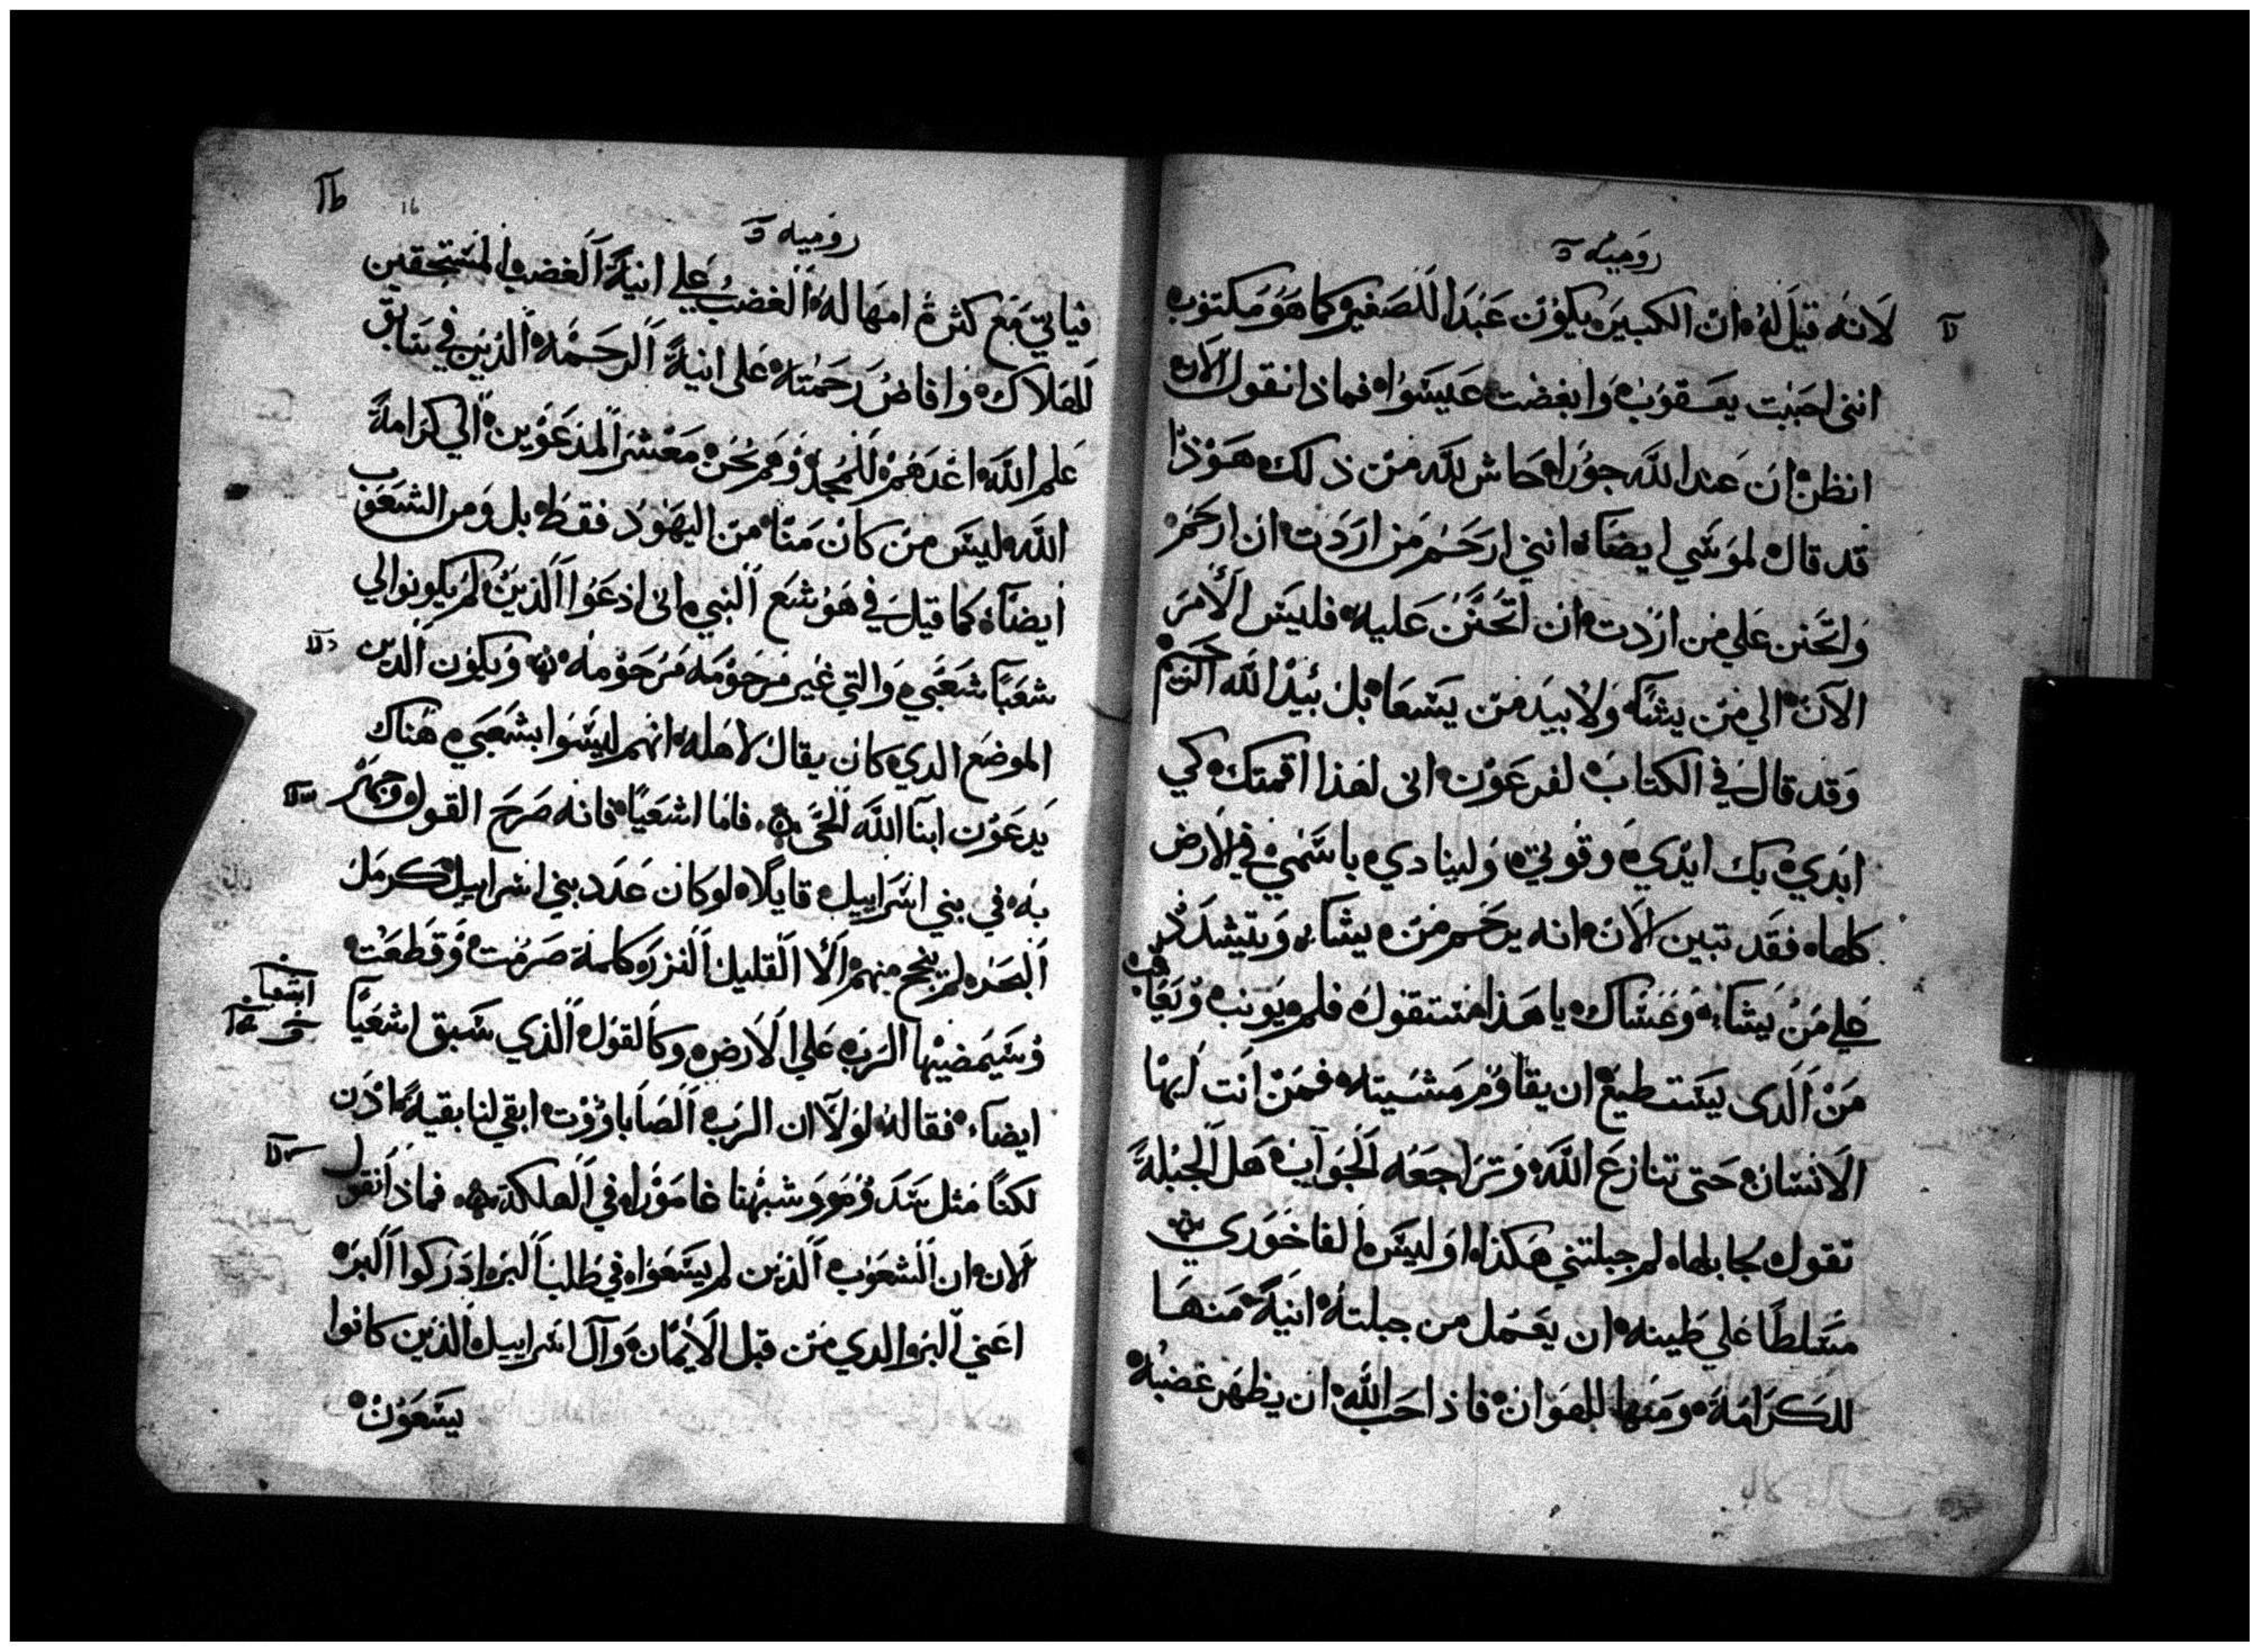 رومية
لانه قيل له ان الكبير يكون عبدا للصغير كما هو مكتوب
انني احببت يعقوب وابغضت عيسوا فماذا نقول الان
انظن ان عند الله جورا حاش لله من ذلك هوذا
قد قال لموسي ايضا انني ارحم من اردت ان ارحم
واتحنن علي من اردت ان اتحنن عليه فليس الامر
الان الي من يشا ولا بيد من يسعا بل بيد الله الرحيم
وقد قال في الكتاب لفرعون اني لهذا اقمتك كي
ابدي بك ايدي وقوتي ولينادي باسمي في الارض
كلها فقد تبين الان انه يرحم من يشا ويتشدد
علي من يشا وعساك يا هذا ستقول فلم يونب ويعاقب
من الدى يستطيع ان يقاوم مشيته فمن انت ايها
الانسان حتى تنازع الله وتراجعه الجواب هل الجبلة
تقول لجابلها لم جبلتني هكذا او ليس الفاخوري
متسلطا علي طينه ان يعمل من جبلته انية منها
للكرامة ومنها للهوان فاذا احب الله ان يظهر غضبه
رومية
فياتي مع كثرة امهاله الغضب علي انية الغضب المستحقين
للهلاك وافاض رحمته على انية الرحمة الذين في سابق
علم الله اعدهم للمجد وهم نحن معشر المدعوين الي كرامة
الله ليس من كان منا من اليهود فقط بل ومن الشعوب
ايضا كما قيل في هوشع النبي اني ادعوا الذين لم يكونوا لي
شعبا شعبي والتي غير مرحومه مرحومه ويكون الدين
الموضع الدي كان يقال لاهله انهم ليسوا بشعبي هناك
يدعون ابنا الله الحي فاما اشعيا فانه صرح القول وجهر
به في بني اسراييل قايلا لو كان عدد بني اسراييل كرمل
البحر لم ينج منهم الا القليل النزر كلمة صرمت وقطعت
وسيمضيها الرب علي الارض وكالقول الذي سبق اشعيا
ايضا فقاله لولا ان الرب الصاباووت ابقي لنا بقية اذن
لكنا مثل سدوم وشبهنا غامورا في الهلكة فماذا نقول
الان ان الشعوب الذين لم يسعوا في طلب البر ادركوا البر
اعني البر الدي من قبل الايمان وآل اسراييل الذين كانوا
يسعون